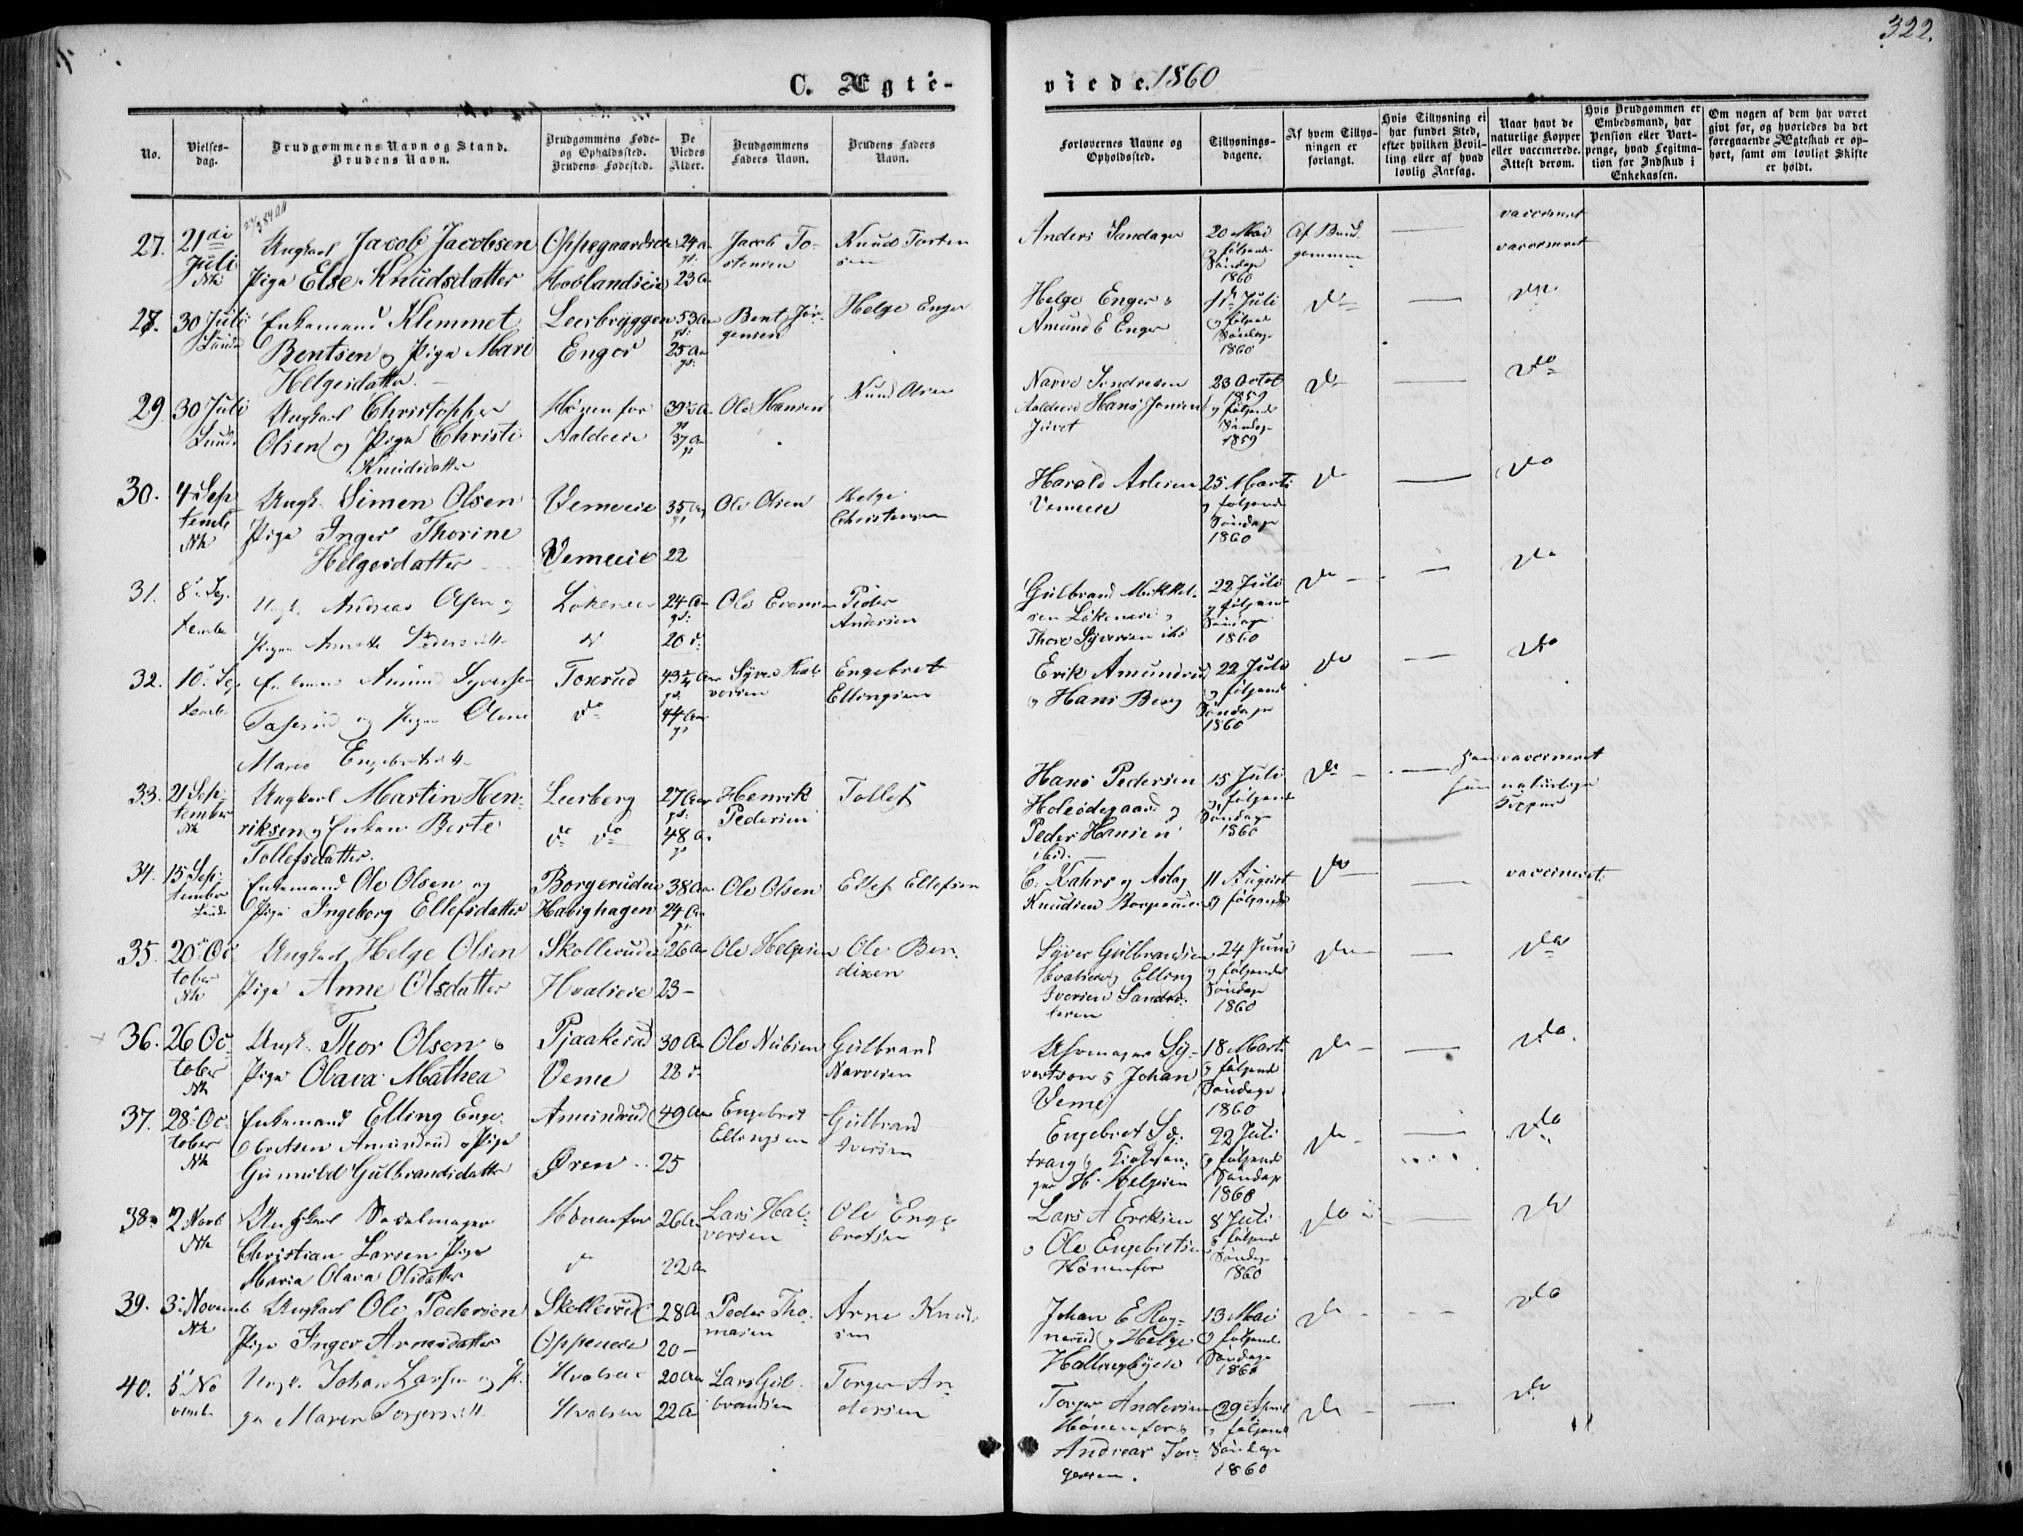 322.
C. Ægte-
viede. 1860
No.
Vielses-
dag.
Brudgommens Navn og Stand.
Brudens Navn.
Brudgommens Føde-
og Opholdssted.
Brudens Fødested.
De
Viedes
Alder.
Brudgommens
Faders Navn.
Brudens Faders
Navn.
Forlovernes Navne og
Opholdssted.
Tillysnings-
dagene.
Af hvem Tillys-
ningen er
forlangt.
Hvis Tillysning ei
har fundet Sted,
efter hvilken Bevil-
ling eller af hvad
lovlig Aarsag.
Naar havt de
naturlige Kopper
eller vaccinerede.
Attest derom.
Hvis Brudgommen er
Embedsmand, har
Pension eller Vart-
penge, hvad Legitima-
tion for Indskud i
Enkekassen.
Om nogen af dem har været
givt før, og hvorledes da det
foregaaende Ægteskab er op-
hørt, samt om lovligt Skifte
er holdt.
27. 21de Juli Nk
Ungkarl Jacob Jacobsen
Pige Else Knudsdatter
Oppegaardseie
Hovlandseie
24 Aar
23 Aar
Jacob To-
stensen
Knud Torsten
sen
Anders Sandager
20 Mai
og følgende
Søndage
1860
Af Brud
gommen
vaccineret
vaccineret
28. 30 Juli Lunde
Enkemand Klemmet
Bentsen og Pige Mari
Helgesdatter
Leersbryggen
Enger
53 Aar
25 Aar
Bent Jør-
gensen
Helge Enger
Helge Enger &
Amund E Enger
Juli
og følgende
Søndage
1860
Do
Do
29. 30 Juli Lunde
Ungkarl Christopher
Olsen og Pige Christi
Knudsdatter
Hønenfos
Aaldseie
39½ Aar
37 Aar
Ole Hansen
Knud Olsen
Narve Sendresen
Aaldseie Hans Jensen
Juvet
23 Octob
1859
og følgende
Søndage
1859
Do
Do
30. 4 Sep
temb Nk
Ungk. Simen Olsen
Pige Inger Thorine
Helgesdatter
Vemeeie
Vemeeie
35 Aar
22
Ole Olsen
Helge
Christensen
Harald Aslesen
Vemeeie
25 Marts
og følgende
Søndage
1860
Do
Do
31. 8de Sep
tembe
Ungk. Andreas Olsen og
Pigen Annette Pedersdtt.
Lökeneie
do
24 Aar
20 do
Ole Evensen
Peder
Andersen
Gulbrand Mikkel-
sen Lökeneie &
Thore Syversen ibd
22 Juli
og følgende
Søndage
1860
Do
Do
32. 10de Sep
tembe
Enkemand Amund Syverse
og Pigen Olene
Maree Engebretsdtt.
Toxrud
do
43¼ Aar
44 Aar
Syver Hal-
vorsen
Engebret
Ellingsen
Erik Amundrud
& Hans Berg
22 Juli
og følgende
Søndage
1860
Do
Do
33. 21 Sep-
tember Nk
Ungkarl Martin Hen-
riksen og Enken Berte
Tollefsdatter.
Leerberg
do do
27 Aar
48 Aar
Henrik
Pedersen
Tollef
Hans Pedersen
Holeødegaard og
Peder Hansen
ibid.
15 Juli
og følgende
Søndage
1860
Do
Han vaccineret
Hun naturlige
Kopper
34. 15 Sep-
tember Lunde
Enkemand Ole Olsen og
Pige Ingeborg Ellefsdatter
Borgerudeie
Habighagen
38 Aar
24 Aar
Ole Olsen
Ellef Ellefsen
C. Kahrs og Aslag
Knudsen Borgerudeie
11 August
og følgende
Do
vaccineret.
35. 20de Oc
tober Nk
Ungkarl Helge Olsen
Pige Anne Olsdatter
Skollerudeie
Hvalseie
26 Aar
23 –
Ole Helgesen
Ole Ben-
dixen
Syver Gulbrandsen
Hvalseie og Elling
Iversen Sandss-
leren
24 Juni
og følgende
Søndage
1860
Do
Do
36. 26 Oc-
tober Nk
Ungk. Thor Olsen &
Pige Olava Mathea
Pjaakerud
Veme
30 Aar
28 do
Ole Nubsen
Gulbrand
Narvesen
Sy-
vertson & Johan
Veme
18 Marts
og følgende
Søndage
1860
Do
Do.
37. 28de Oc-
tober Nk
Enkemand Elling Enge-
bretsen Amundrud & Pige
Gunnild Gulbrandsdatter
Amundrud
Øren
49 Aar
25
Engebret
Ellingsen
Gulbrand
Iversen
Engebret Sæ-
trang &
H. Helgesen
22 Juli
og følgende
Søndage
1860
Do
Do
38. 2 Novb Nk
Ungkarl Sadelmager
Christian Larsen Pige
Maria Olava Olsdatter
Hønenfos
do
26 Aar
22 Aar
Lars Hal-
vorsen
Ole Enge
bretsen
Lars A Ericksen
& Ole Engebretsen
Hønenfos
8 Juli
og følgende
Søndage
1860
Do
Do
39. 3de Novemb Nk
Ungkarl Ole Pedersen
Pige Inger Arnesdatter
Skollerud
Oppeneie
28 A
20 –
Peder Tho-
masen
Arne Knud-
sen
Johan E Rog-
nerud og Helge
Hallingbyeie
13 Mai
og følgende
Søndage
1860
Do
Do
40. 5te No
vembe
Ungk. Johan Larsen og Pi-
ge Maren Torgersdtt.
Hvalseie
Hvalseie
20 Aar
22 A
Lars Gul-
brandsen
Torger An-
dersen
Torger Andersen
Hønenfos &
Andreas Tor-
gersen.
29 April
og følgende
Søndage
1860
Do
Do